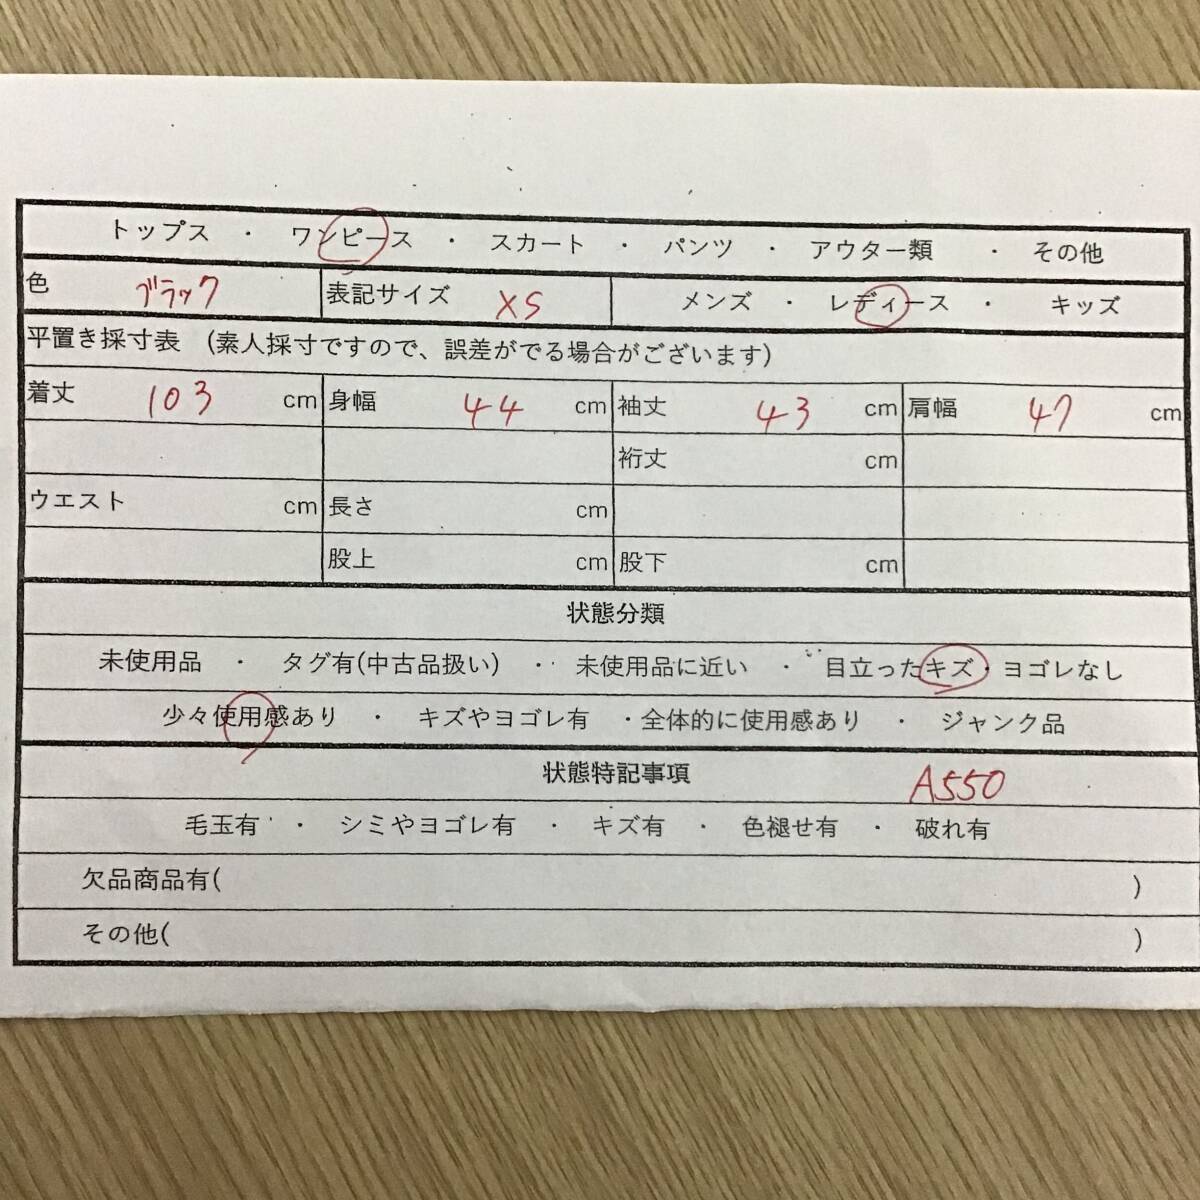 トップス ・ ワンピース ・ スカート ・ パンツ ・ アウター類 ・ その他
色 ブラック 表記サイズ XS メンズ ・ レディース ・ キッズ
平置き採寸表 (素人採寸ですので、誤差がでる場合がございます)
着丈 103 cm 身幅 44 cm 袖丈 43 cm 肩幅 47 cm
裄丈 cm
ウエスト cm 長さ cm
股上 cm 股下 cm
状態分類
未使用品 ・ タグ有(中古品扱い) ・ 未使用品に近い ・ 目立ったキズ・ヨゴレなし
少々使用感あり ・ キズやヨゴレ有 ・全体的に使用感あり ・ ジャンク品
状態特記事項 A550
毛玉有 ・ シミやヨゴレ有 ・ キズ有 ・ 色褪せ有 ・ 破れ有
欠品商品有( )
その他( )